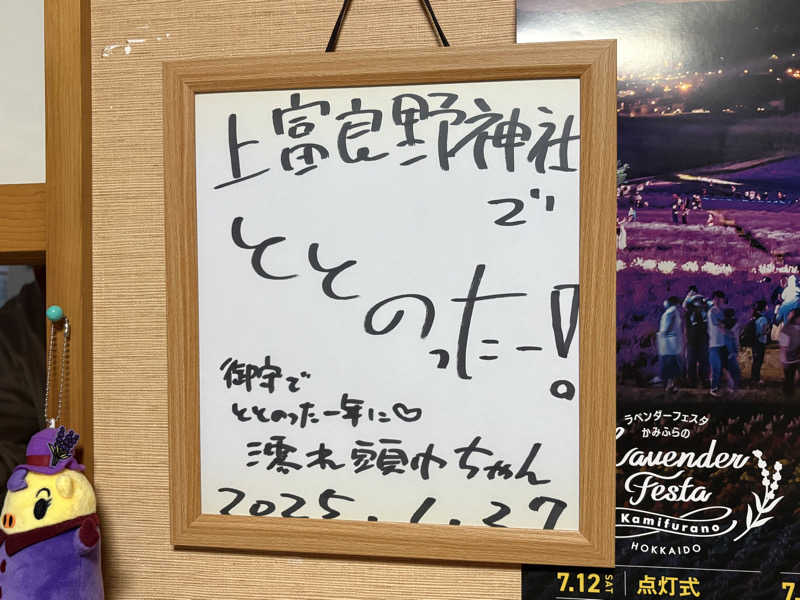 上富良野神社
で
ととのったー!
御守で
ととのった一年に♡
濡れ頭巾ちゃん
2025.1.27
ラベンダーフェスタ
かみふらの
Lavender
Festa
Kamifurano
HOKKAIDO
7.12 SAT 点灯式
7.